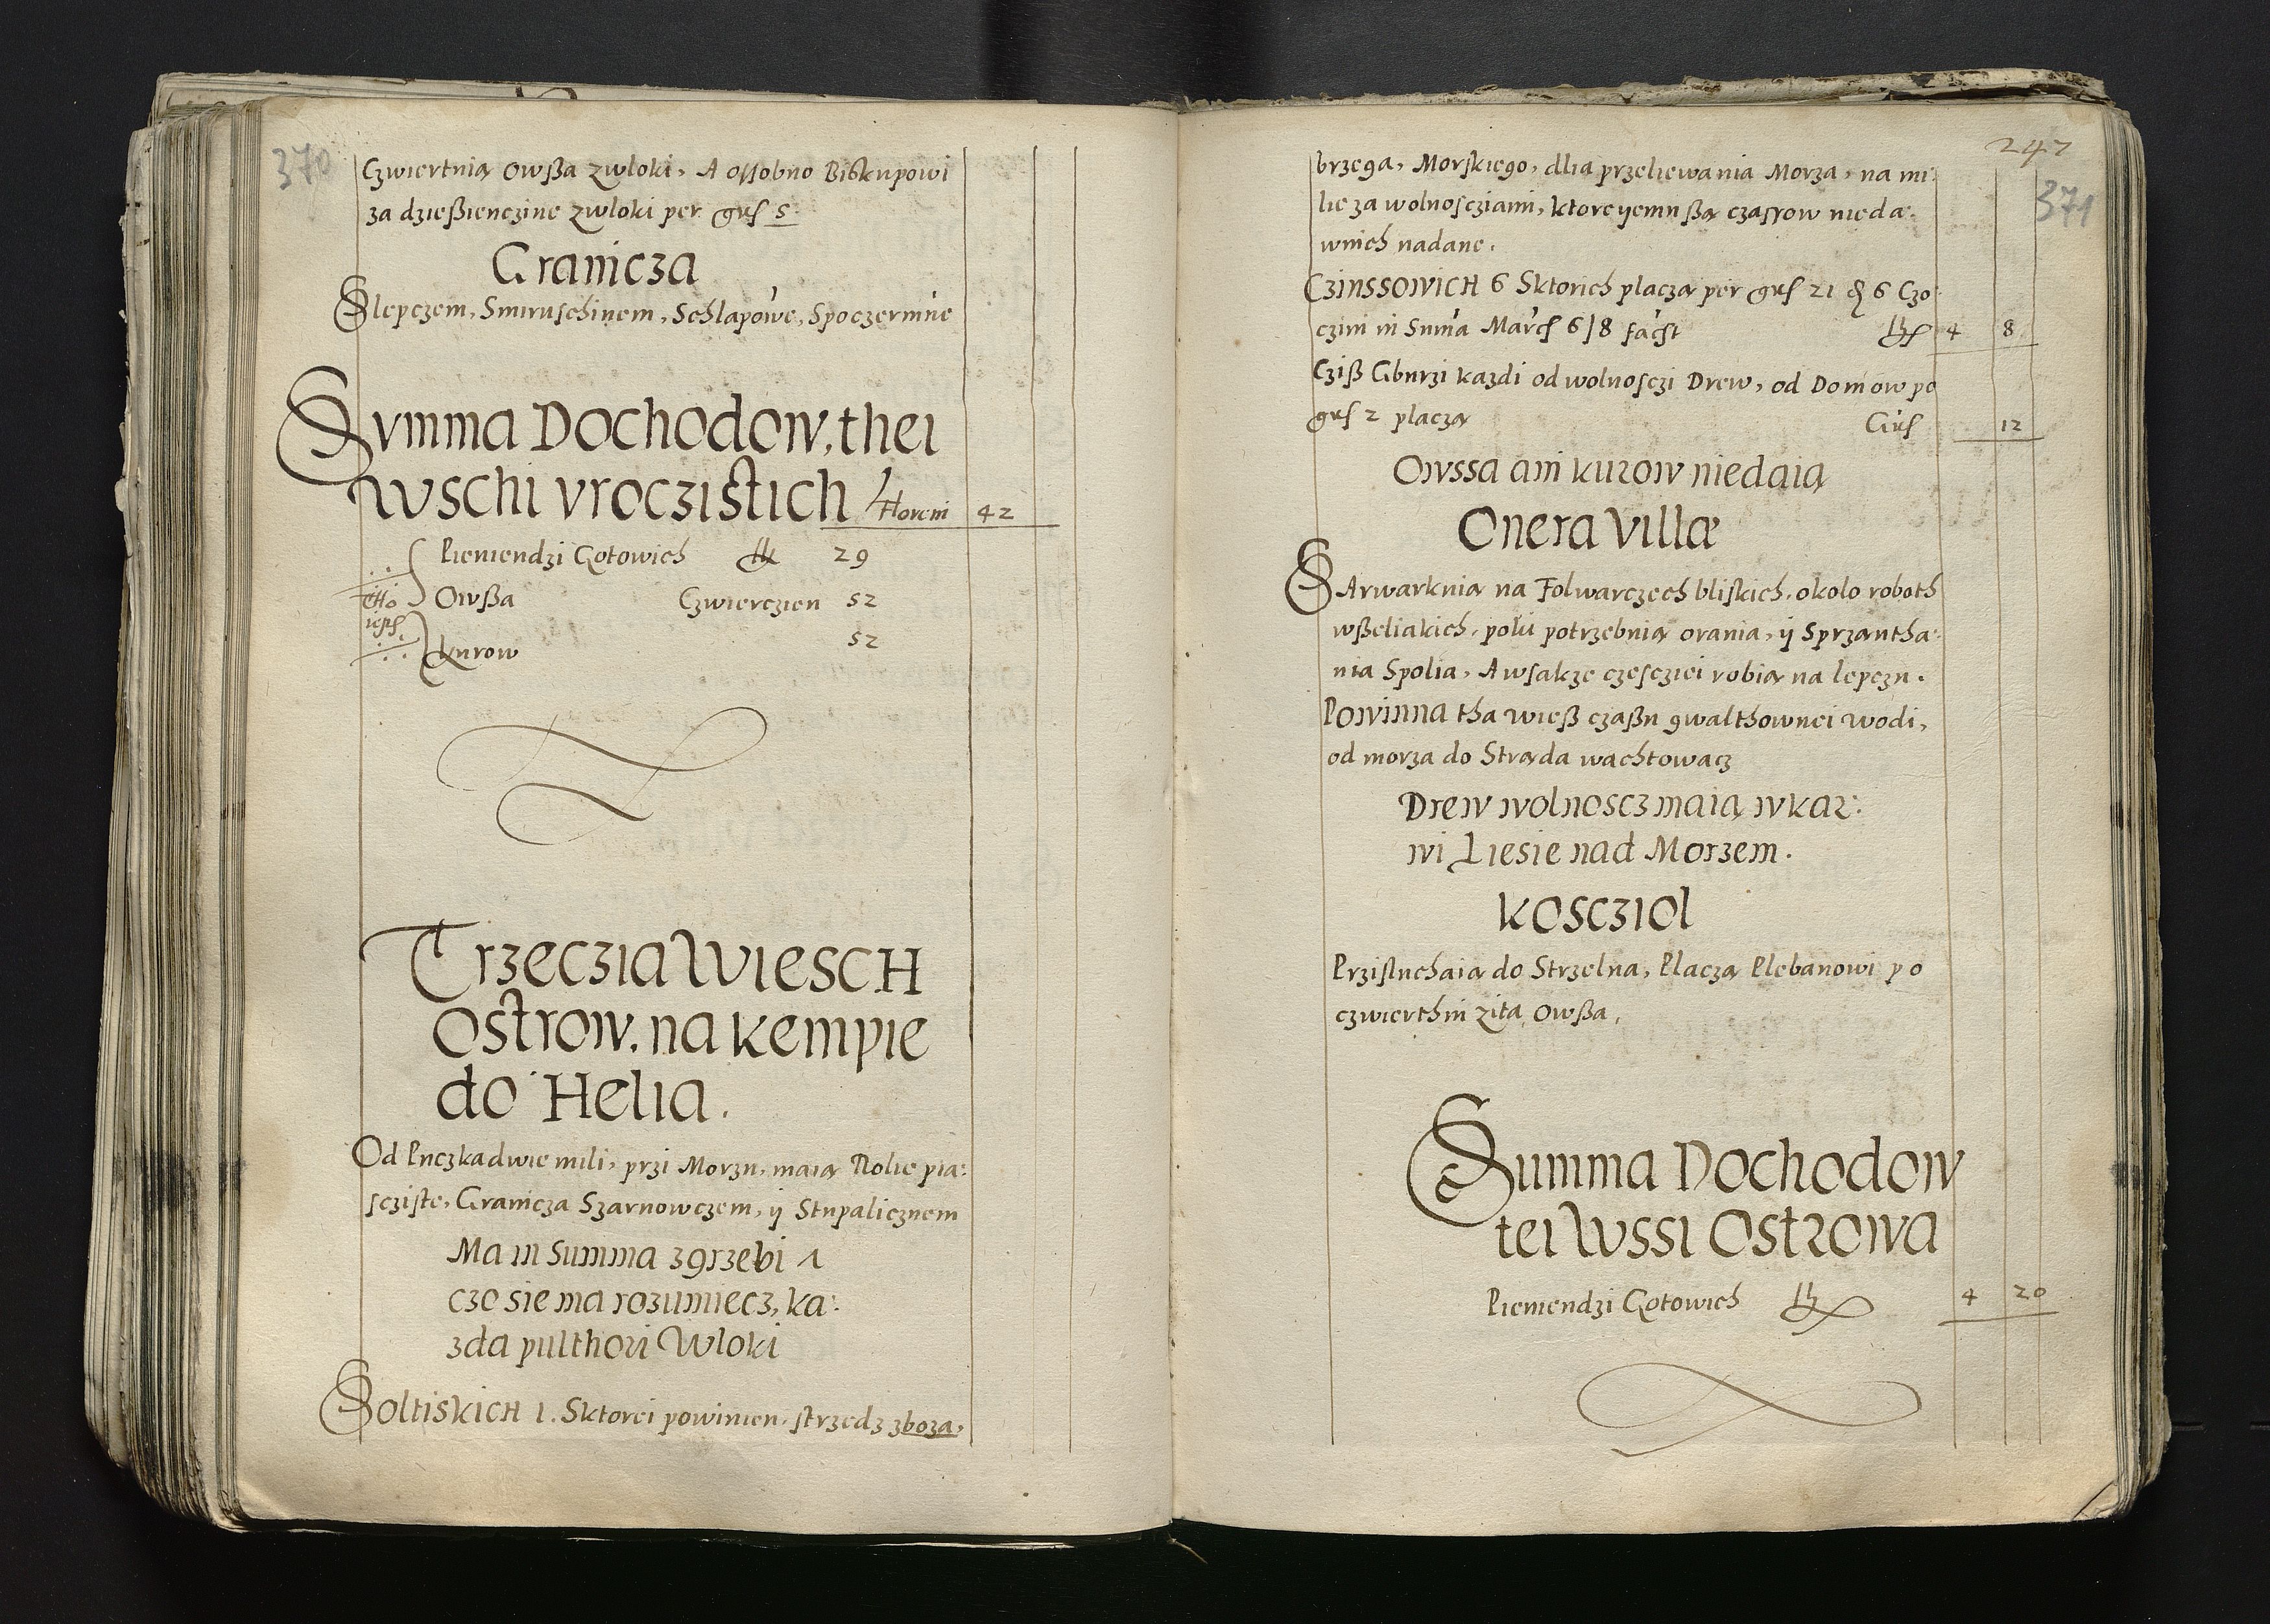 370
Czwiertnią Owßa zwloki, A ossobno Biskupowi
za dzießienczine zwloki per grs 5.
Granicza
Slepczem, Smiruschinem, Schlapowe, Spoczernine
Summa Dochodow, thei
wschi vroczistich Floreni 42
Pieniendzi Gotowich 29
Owßa Czwierczien 52
Kurow 52
Trzeczia Wiesch
Ostrow. na kempie
do Helia.
Od Puczka dwie mili, przi Morzu, maią Rolie pia:
scziste, Granicza Szarnowczem, ÿ Stupalicznem
Ma in Summa zgrzebi 1
czo sie ma rozumiecz, ka:
zda pulthori Wloki
Soltiskich 1. Sktorei powinien, strzedz zboza,
247
371
brzega, Morskiego, dlia przeliewania Morza, na mi:
lie za wolnoscziami, ktore yemu ßą czassow nieda:
wnich nadane.
Czinssowich 6 Sktorich placzą per grs 21 & 6 Czo:
czini in Suma March 6/8 facst 4 8
Cziß Gburzi kazdi od wolnosczi Drew, od Domow po
grs 2 placzą Grs 12
Owssa ani kurow niedaią
Onera Villæ
SArwarknią na Folwarczech bliskich, okolo roboth
wßeliakich, polu potrzebnią orania, ÿ Sprząntha:
nia Spolia, A wsakze czesciei robią na lepczu.
Powinna tha wieß czaßu gwalthownei wodi,
od morza do Strąda wachtowacz
Drew wolnoscz maią w kar:
wi Liesie nad Morzem.
Kosczioł
Przisluchaią do Strzelna, Placzą Plebanowi po
czwierthni zita, Owßa,
Summa Dochodow
tei Wssi Ostrowa
Pieniendzi Gotowich 4 20